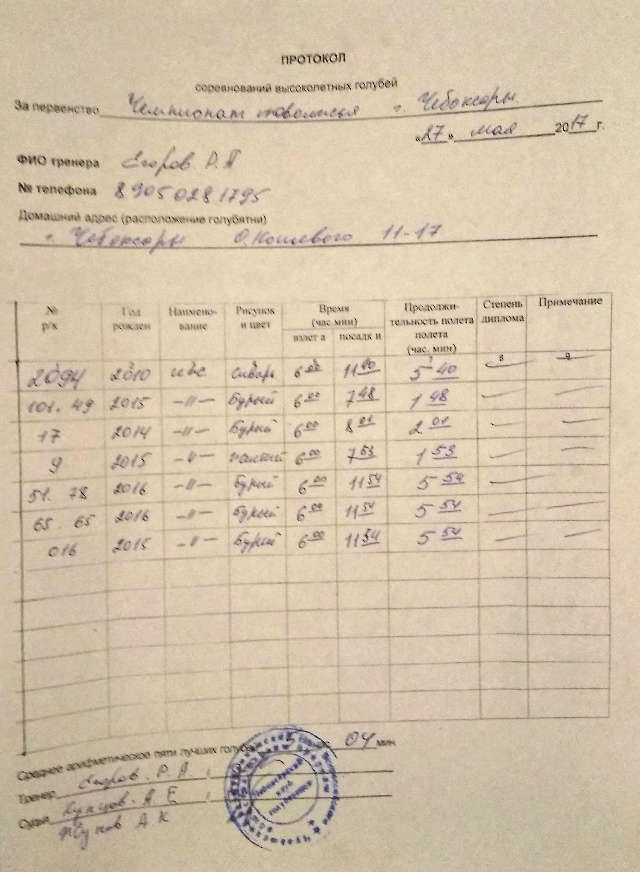 ПРОТОКОЛ
соревнований высоколетных голубей
За первенство Чемпионат поволжья г. Чебоксары.
«27» мая 2017 г.
ФИО тренера Егоров. Р. А
№ телефона 89050281795
Домашний адрес (расположение голубятни)
г. Чебоксары О. Кошевого 11-17
№ р/к Год рожден Наимено-вание Рисунок и цвет Время (час мин) взлет а посадк и Продолжи-тельность полета полета (час. мин) Степень диплома Примечание
7 8 9
2094 2010 ижс сизарь 6 00 11 40 5 40 — —
101. 49 2015 —"— бурый 6 00 7 48 1 48 — —
17 2014 —"— бурый 6 00 8 01 2 01 — —
9 2015 —"— 6 00 7 53 1 53 — —
51. 78 2016 —"— бурый 6 00 11 54 5 54 — —
65. 65 2016 —"— бурый 6 00 11 54 5 54 — —
016 2015 —"— бурый 6 00 11 54 5 54 — —
Среднее арифметическое пяти лучших голубей 04 мин
Тренер Егоров. Р. А.
Судьи Купцов. А Е
А К